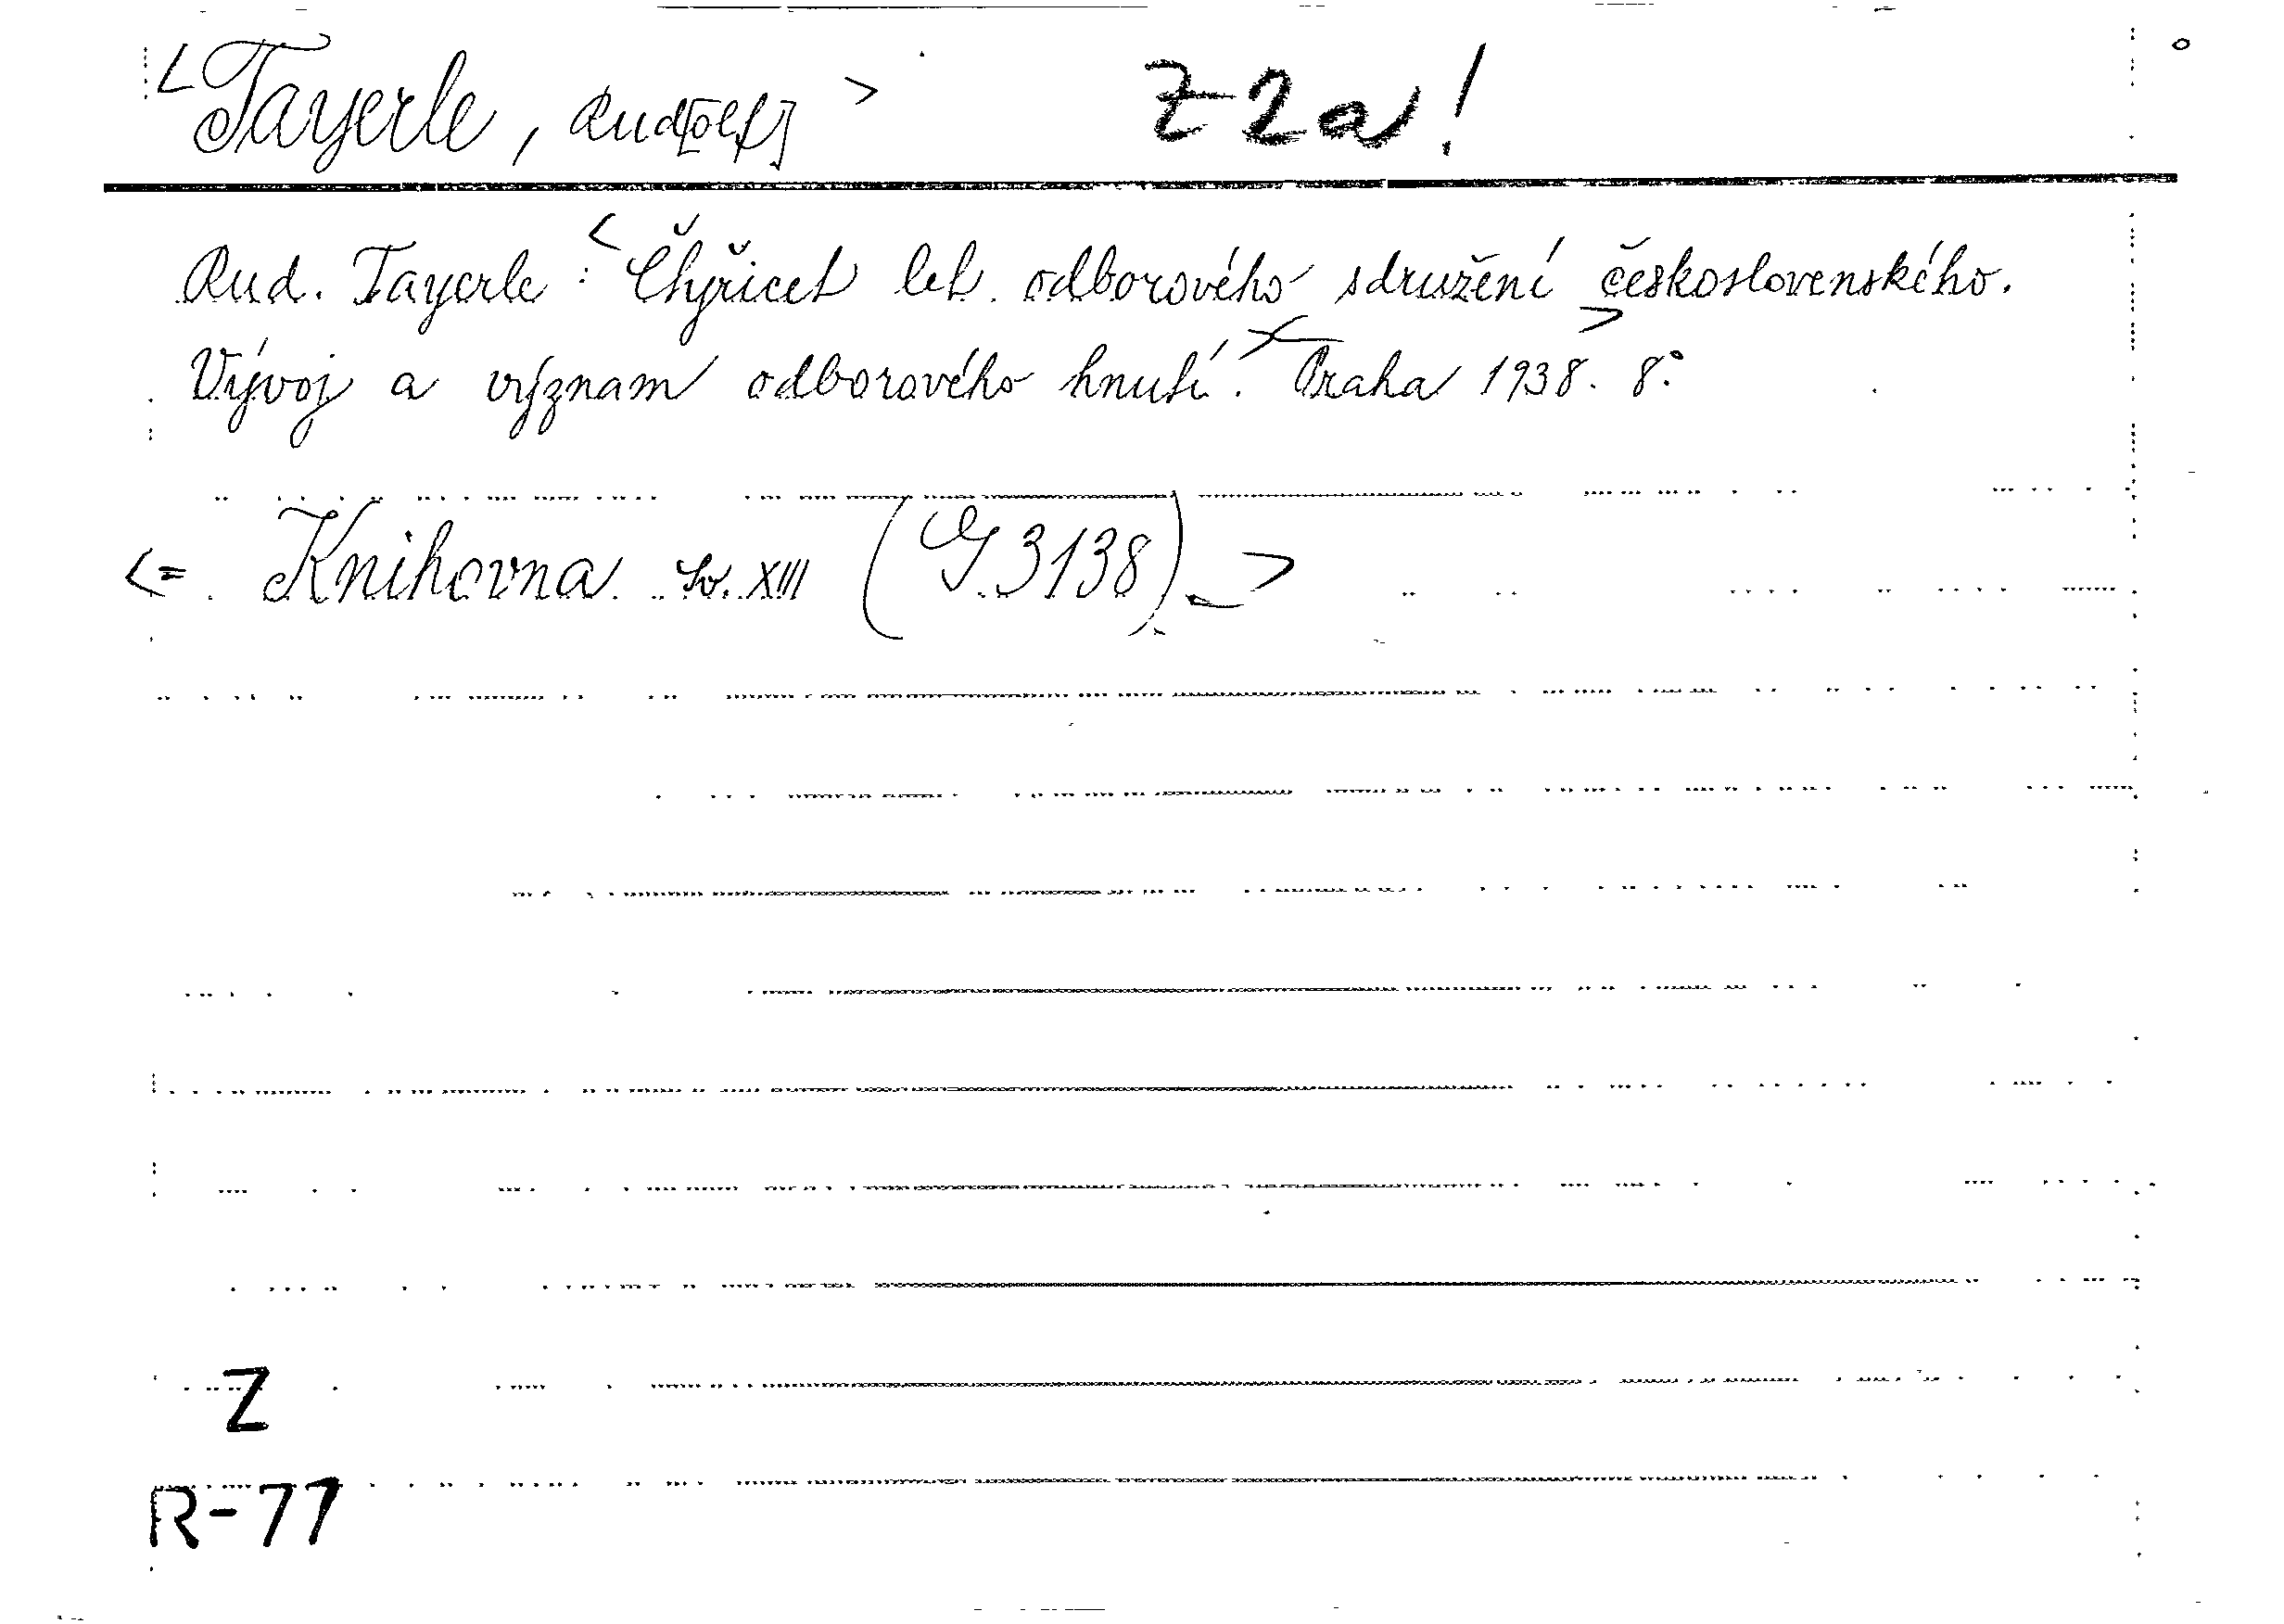 <Tayerle, Rud[olf]> Z 2a!
Rud. Tayerle: <Čtyřicet let odborového sdružení československého.
Vývoj a význam odborového hnutí.> Praha 1938. 8°
<= Knihovna sv. XIII (G 3138)->
Z
R-77